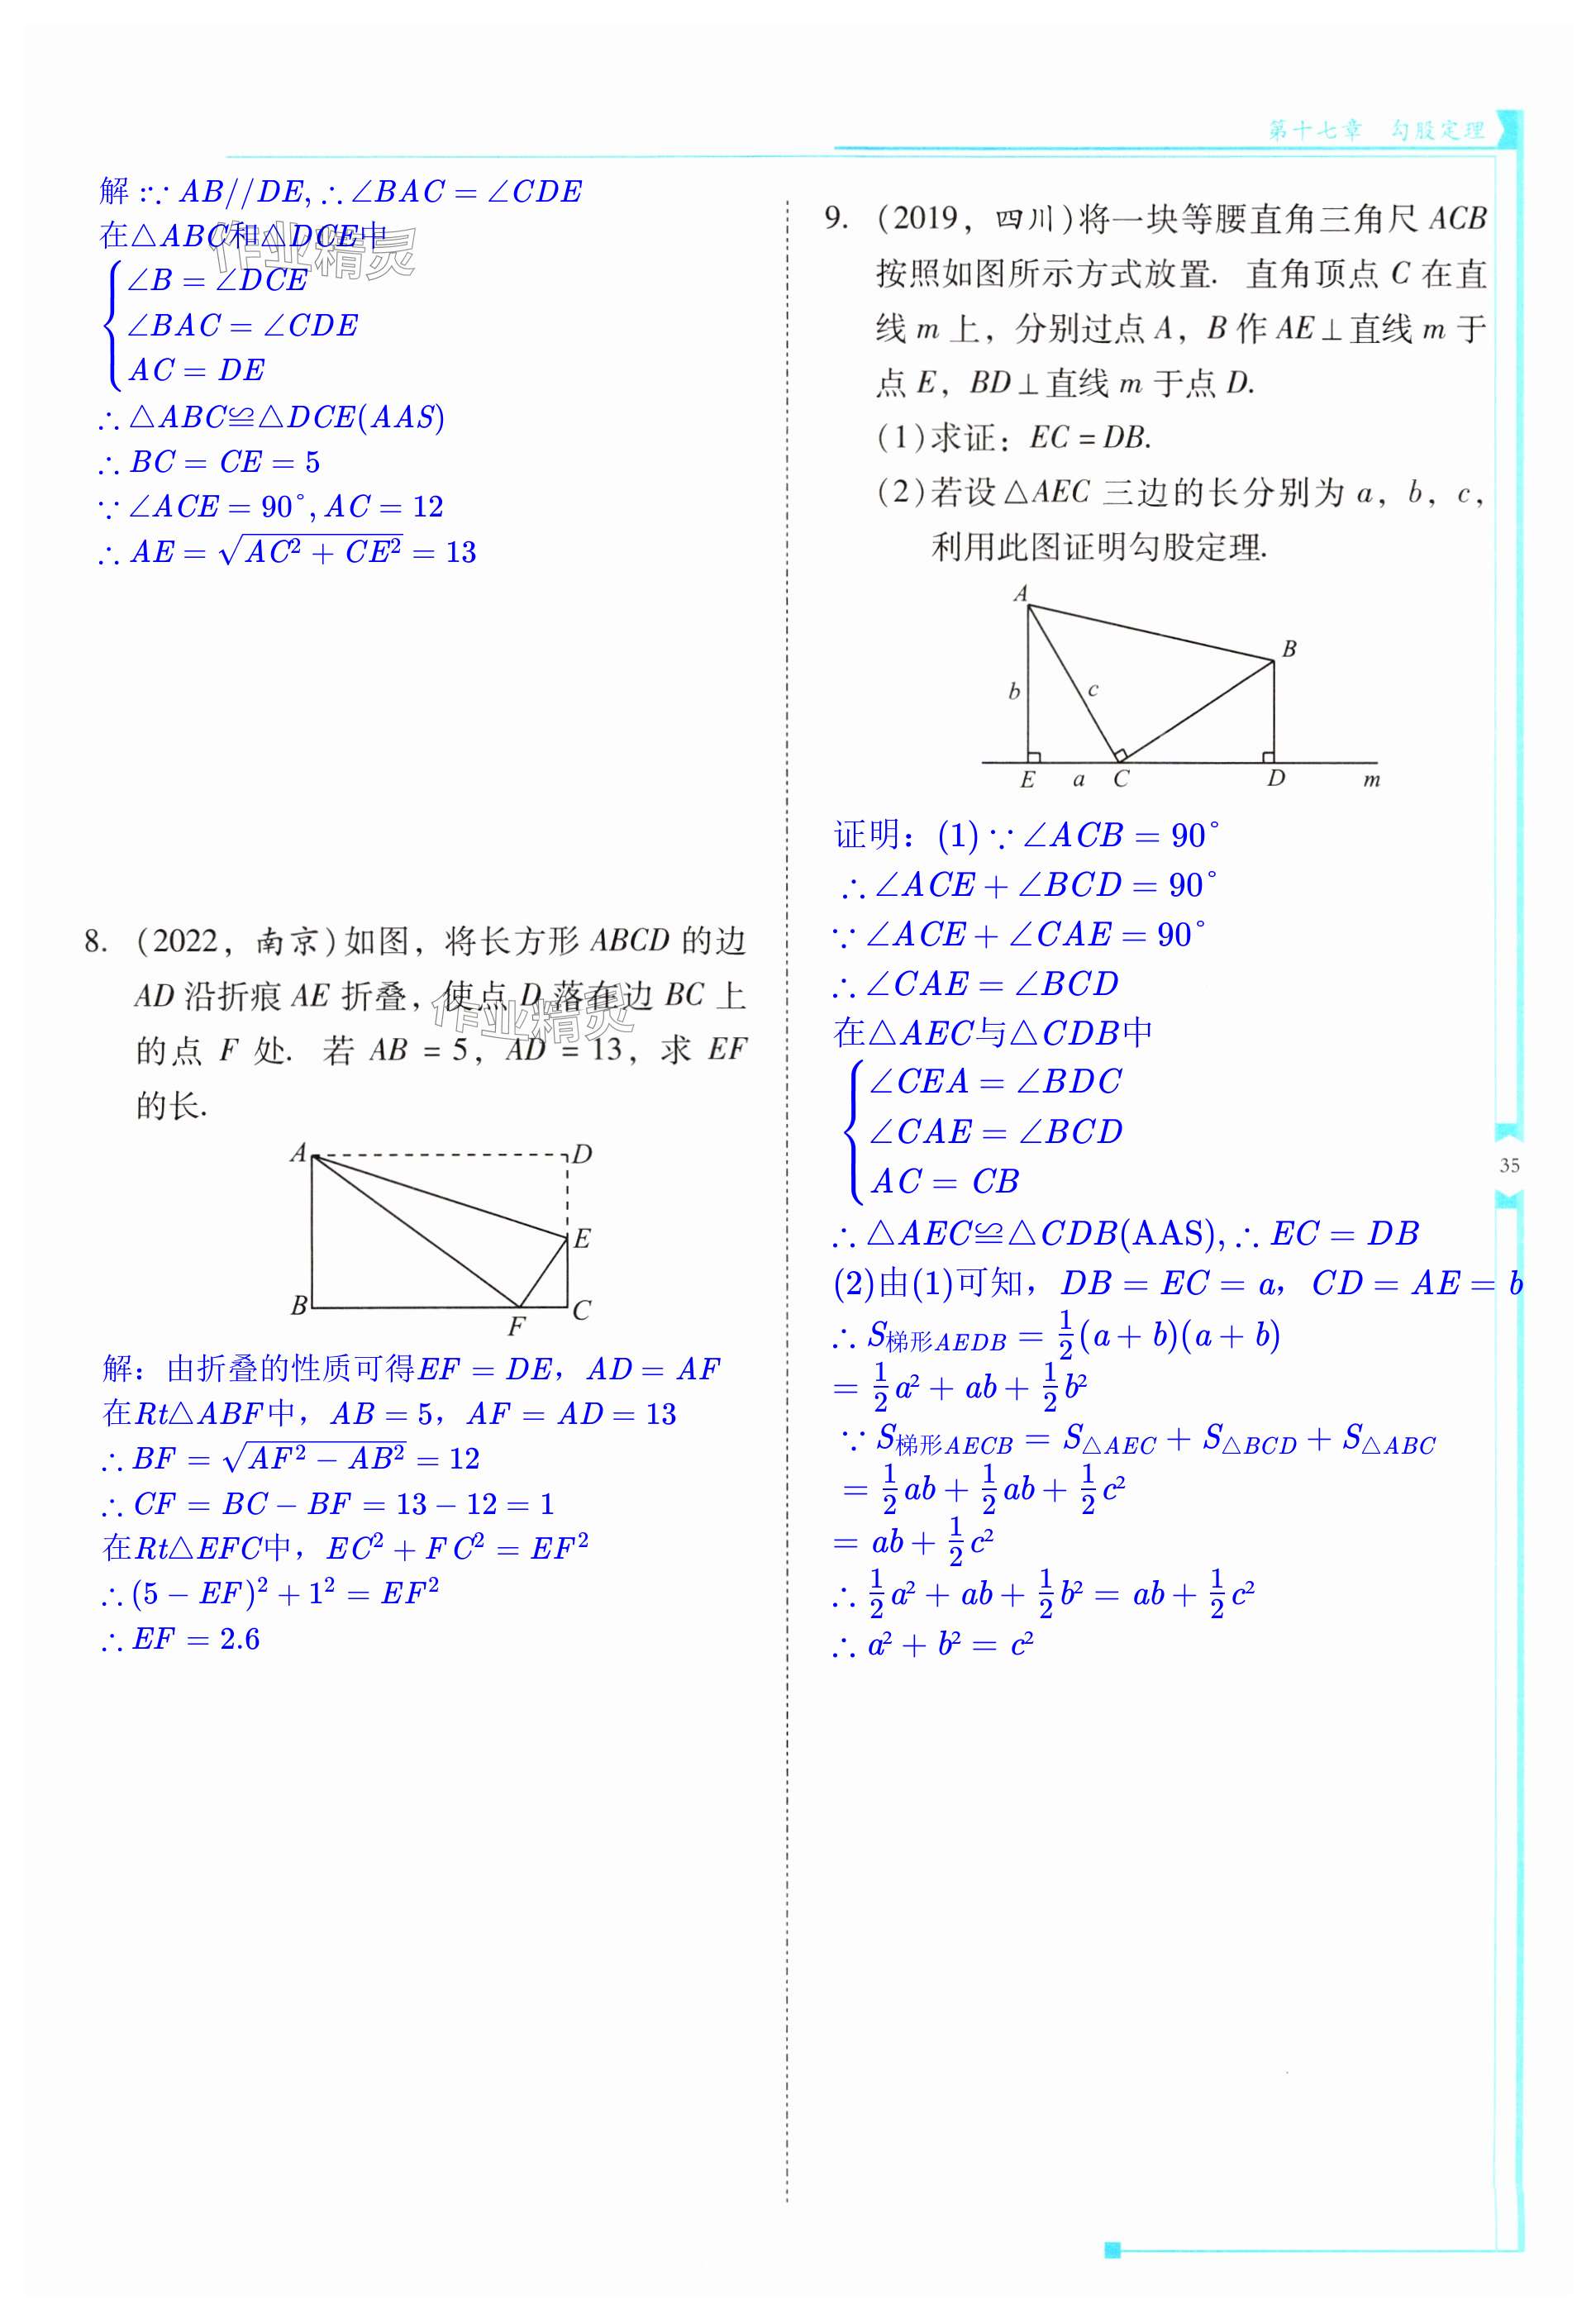 第十七章 勾股定理
解:∵ AB//DE,∴∠BAC = ∠CDE
在△ABC和△DCE中
∠B = ∠DCE
∠BAC = ∠CDE
AC = DE
∴ △ABC≌△DCE(AAS)
∴ BC = CE = 5
∵ ∠ACE = 90°, AC = 12
∴ AE = √(AC² + CE²) = 13
作业精灵
8. (2022, 南京)如图, 将长方形 ABCD 的边
AD 沿折痕 AE 折叠, 使点 D 落在边 BC 上
的点 F 处. 若 AB = 5, AD = 13, 求 EF
的长.
作业精灵
A
D
E
B
F
C
解：由折叠的性质可得EF = DE，AD = AF
在Rt△ABF中，AB = 5，AF = AD = 13
∴ BF = √(AF² − AB²) = 12
∴ CF = BC − BF = 13 − 12 = 1
在Rt△EFC中，EC² + FC² = EF²
∴ (5 − EF)² + 1² = EF²
∴ EF = 2.6
9. (2019, 四川)将一块等腰直角三角尺 ACB
按照如图所示方式放置. 直角顶点 C 在直
线 m 上, 分别过点 A, B 作 AE⊥直线 m 于
点 E, BD⊥直线 m 于点 D.
(1)求证: EC = DB.
(2)若设△AEC 三边的长分别为 a, b, c,
利用此图证明勾股定理.
A
B
b
c
E a C D m
证明：(1) ∵ ∠ACB = 90°
∴ ∠ACE + ∠BCD = 90°
∵ ∠ACE + ∠CAE = 90°
∴ ∠CAE = ∠BCD
在△AEC与△CDB中
∠CEA = ∠BDC
∠CAE = ∠BCD
AC = CB
∴ △AEC≌△CDB(AAS), ∴ EC = DB
(2)由(1)可知，DB = EC = a，CD = AE = b
∴ S梯形AEDB = 1/2(a + b)(a + b)
= 1/2a² + ab + 1/2b²
∵ S梯形AECB = S△AEC + S△BCD + S△ABC
= 1/2ab + 1/2ab + 1/2c²
= ab + 1/2c²
∴ 1/2a² + ab + 1/2b² = ab + 1/2c²
∴ a² + b² = c²
35